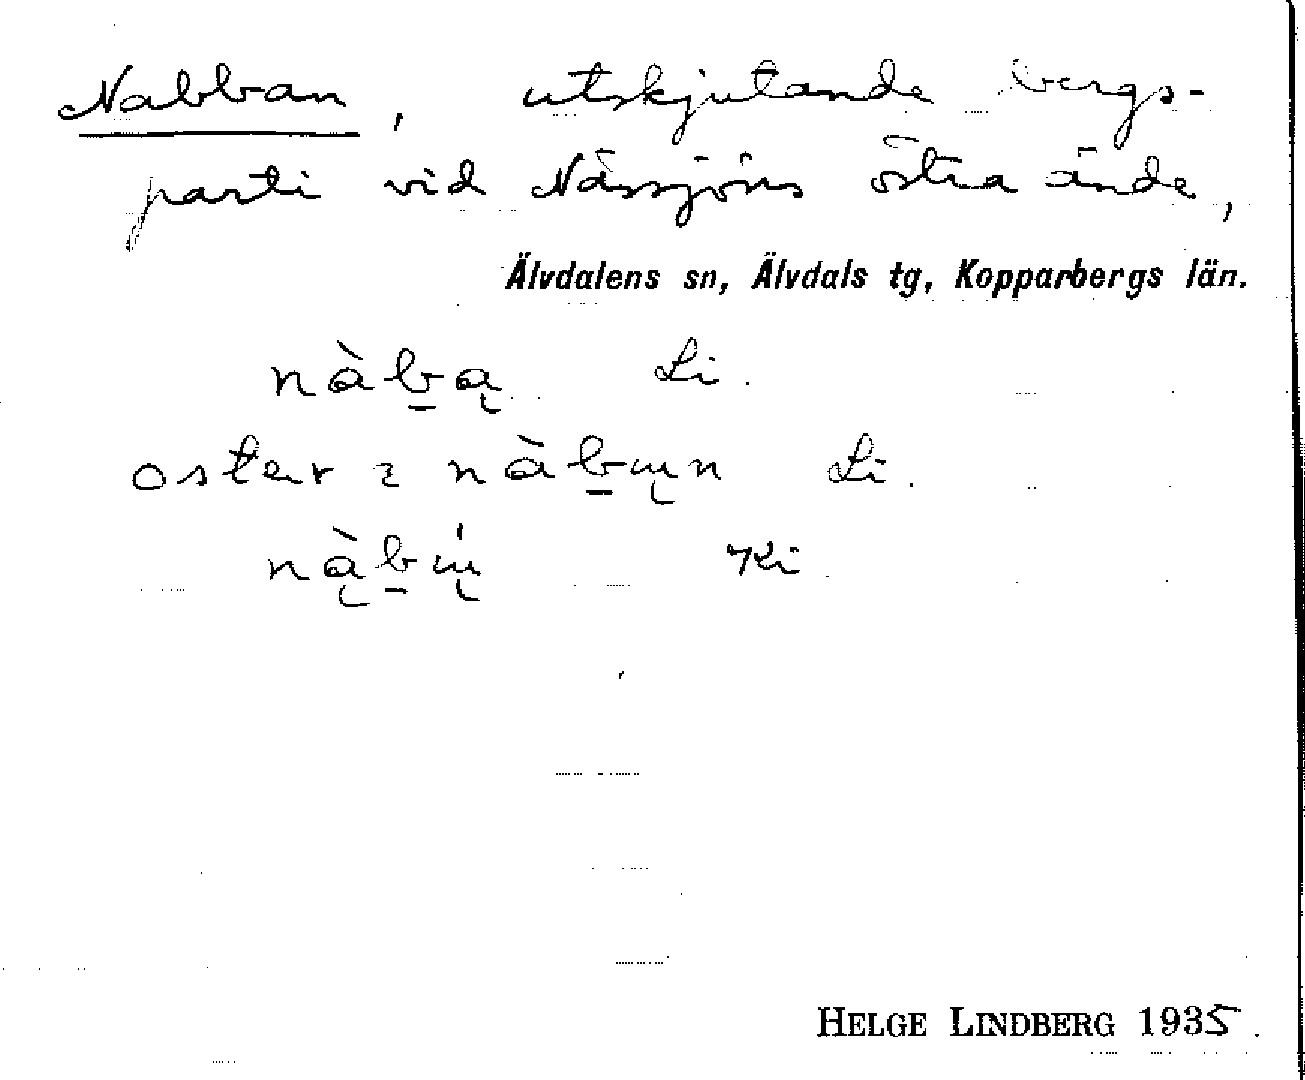 Nabban, utskjutande bergs-
parti vid Nässjöns östra ände,
Älvdalens sn, Älvdals tg, Kopparbergs län.
nàb̲ą Li.
ostər ı nàb̲ųn Li.
ną̀b̲ų́ Ki
HELGE LINDBERG 1935.